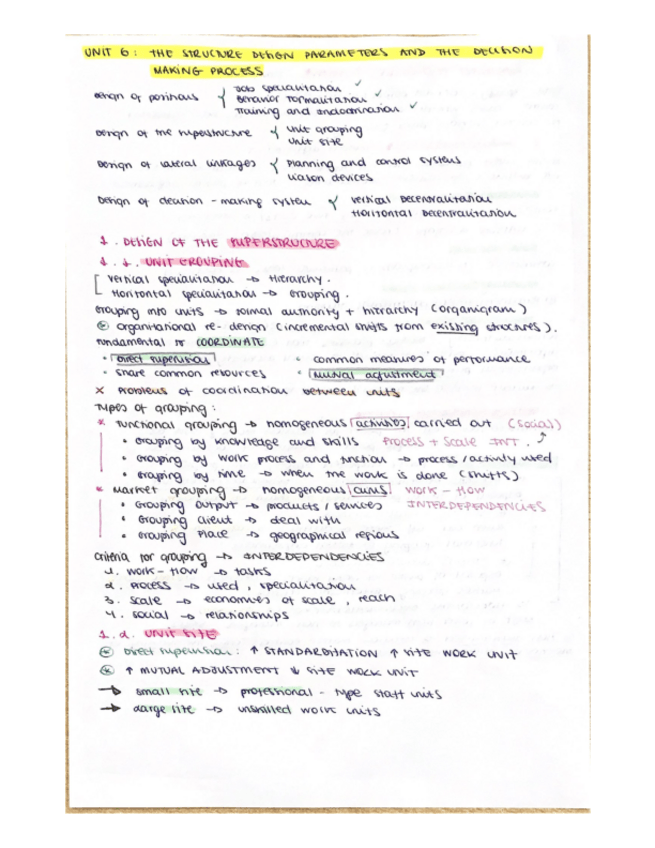 UNIT 6: THE STRUCTURE DESIGN PARAMETERS AND THE DECISION
MAKING PROCESS
Design of positions { Job specialization ✓
Behavior formalization ✓
Training and indoctrination ✓
Design of the superstructure { Unit grouping
Unit size
Design of lateral linkages { Planning and control systems
Liason devices
Design of decision - making system { Vertical Decentralization
Horizontal Decentralization
1. DESIGN OF THE SUPERSTRUCTURE
1.1. UNIT GROUPING
[ Vertical specialization → Hierarchy.
Horizontal specialization → Grouping.
Grouping into units → formal authority + hierarchy (organigram)
⊛ organizational re-design (incremental shifts from existing structures).
Fundamental to COORDINATE
• Direct supervision • common measures of performance
• share common resources • Mutual adjustment
X Problems of coordination between units
Types of grouping:
* Functional grouping → homogeneous activities carried out (social)
• Grouping by knowledge and skills Process + Scale INT.
• Grouping by work process and function → process/activity used
• Grouping by time → when the work is done (shifts)
* Market grouping → homogeneous aims WORK-FLOW
• Grouping Output → products/services INTERDEPENDENCIES
• Grouping Client → deal with
• Grouping Place → geographical regions
Criteria for grouping → INTERDEPENDENCIES
1. Work-flow → tasks
2. Process → used, specialization
3. Scale → economies of scale, reach
4. Social → relationships
1.2. UNIT SIZE
⊛ Direct supervision: ↑ STANDARDIZATION ↑ SIZE WORK UNIT
⊛ ↑ MUTUAL ADJUSTMENT ↓ SIZE WORK UNIT
→ small size → professional - type staff units
→ Large size → unskilled work units